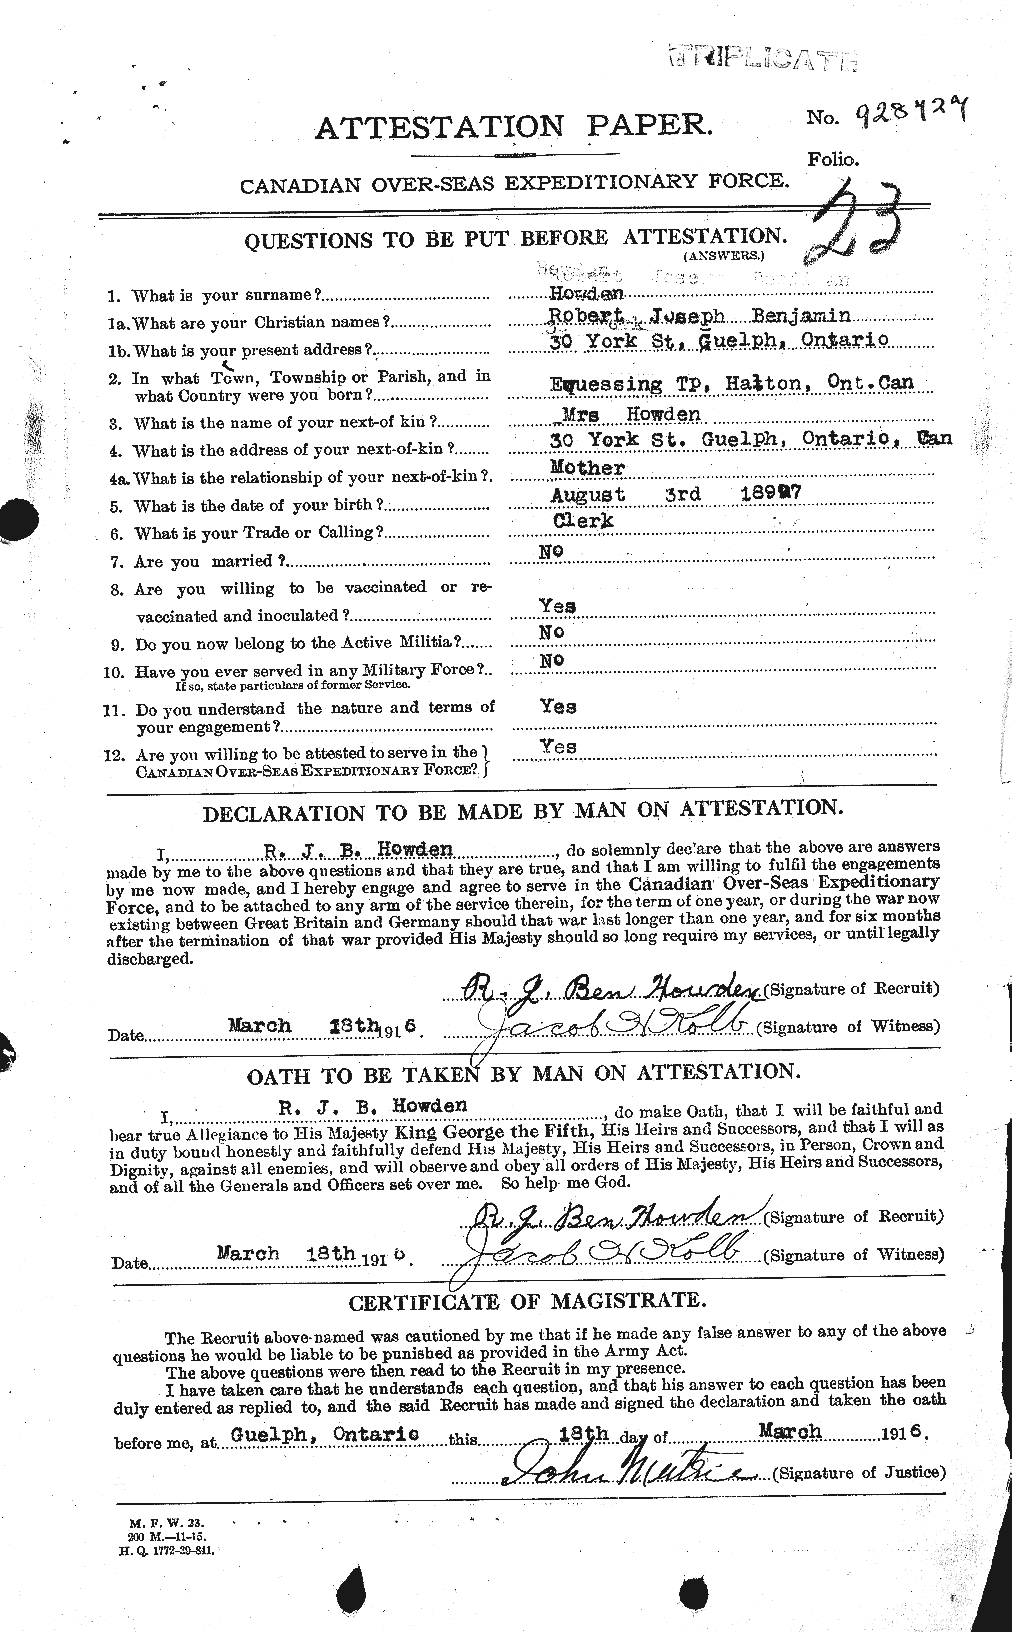 TRIPLICATE
ATTESTATION PAPER.
No. 928427
Folio.
23
CANADIAN OVER-SEAS EXPEDITIONARY FORCE.
QUESTIONS TO BE PUT BEFORE ATTESTATION.
(ANSWERS.)
1. What is your surname? Howden
1a. What are your Christian names? Robert Joseph Benjamin
1b. What is your present address? 30 York St, Guelph, Ontario
2. In what Town, Township or Parish, and in
what Country were you born? Equessing Tp, Halton, Ont.Can
3. What is the name of your next-of kin? Mrs Howden
4. What is the address of your next-of-kin? 30 York St. Guelph, Ontario, Can
4a. What is the relationship of your next-of-kin? Mother
5. What is the date of your birth? August 3rd 1897
6. What is your Trade or Calling? Clerk
7. Are you married? No
8. Are you willing to be vaccinated or re-
vaccinated and inoculated? Yes
9. Do you now belong to the Active Militia? No
10. Have you ever served in any Military Force? No
If so, state particulars of former Service.
11. Do you understand the nature and terms of
your engagement? Yes
12. Are you willing to be attested to serve in the
CANADIAN OVER-SEAS EXPEDITIONARY FORCE? Yes
DECLARATION TO BE MADE BY MAN ON ATTESTATION.
I, R. J. B. Howden, do solemnly declare that the above are answers
made by me to the above questions and that they are true, and that I am willing to fulfil the engagements
by me now made, and I hereby engage and agree to serve in the Canadian Over-Seas Expeditionary
Force, and to be attached to any arm of the service therein, for the term of one year, or during the war now
existing between Great Britain and Germany should that war last longer than one year, and for six months
after the termination of that war provided His Majesty should so long require my services, or until legally
discharged.
R. J. Ben Howden (Signature of Recruit)
Date March 18th 1916. Jacob H Kolb (Signature of Witness)
OATH TO BE TAKEN BY MAN ON ATTESTATION.
I, R. J. B. Howden, do make Oath, that I will be faithful and
bear true Allegiance to His Majesty King George the Fifth, His Heirs and Successors, and that I will as
in duty bound honestly and faithfully defend His Majesty, His Heirs and Successors, in Person, Crown and
Dignity, against all enemies, and will observe and obey all orders of His Majesty, His Heirs and Successors,
and of all the Generals and Officers set over me. So help me God.
R. J. Ben Howden (Signature of Recruit)
Date March 18th 1916. Jacob H Kolb (Signature of Witness)
CERTIFICATE OF MAGISTRATE.
The Recruit above-named was cautioned by me that if he made any false answer to any of the above
questions he would be liable to be punished as provided in the Army Act.
The above questions were then read to the Recruit in my presence.
I have taken care that he understands each question, and that his answer to each question has been
duly entered as replied to, and the said Recruit has made and signed the declaration and taken the oath
before me, at Guelph, Ontario this 18th day of March 1916.
John (Signature of Justice)
M. F. W. 23.
200 M.—11-15.
H. Q. 1772-39-841.